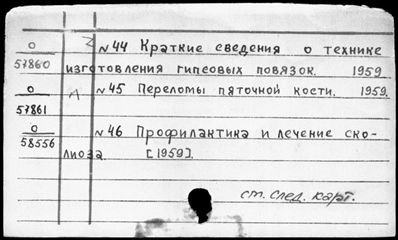 О №44 Краткие сведения о технике
57860 изготовления гипсовых повязок. 1959
О №45 Переломы пяточной кости. 1959.
57861
О №46 Профилактика и лечение ско-
58556
лиоза. [1959].
ст. след. карт.